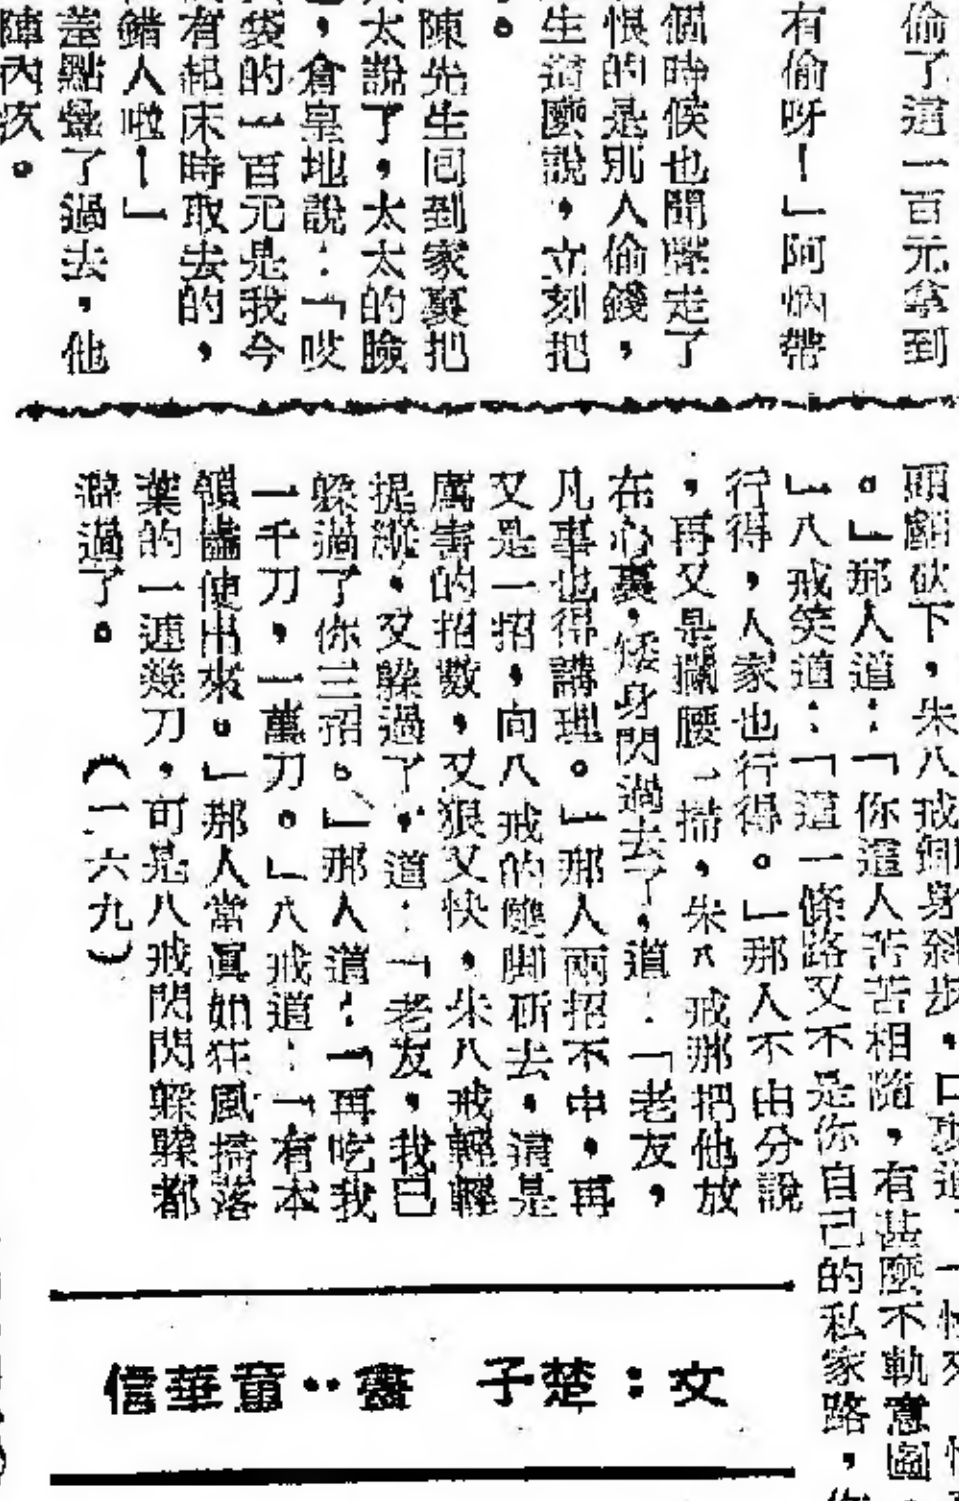 偷了這一百元拿到
有偷呀！」阿炳帶
個時候也聞聲走了
恨的是別人偷錢，
生這麼說，立刻把
。
陳先生回到家裏把
太說了，太太的臉
，倉皇地說：「哎
袋的一百元是我今
有起床時取去的，
錯人啦！」
差點暈了過去，他
陣內疚。
頭顱砍下，朱八戒卸身斜步，口
。」那人道：「你這人苦苦相隨，有甚麼不軌意圖
」八戒笑道：「這一條路又不是你自己的私家路，
行得，人家也行得。」那人不由分說
，再又是攔腰一掃，朱八戒那把他放
在心裏，矮身閃過去了，道：「老友，
凡事也得講理。」那人兩招不中，再
又是一招，向八戒的雙脚斫去，這是
厲害的招數，又狠又快，朱八戒輕輕
提縱，又躲過了，道：「老友，我已
躲過了你三招。」那人道：「再吃我
一千刀，一萬刀。」八戒道：「有本
領儘使出來。」那人當眞如狂風掃落
葉的一連幾刀，可是八戒閃閃躲躲都
避過了。（一六九）
文：楚子　畫：童華信